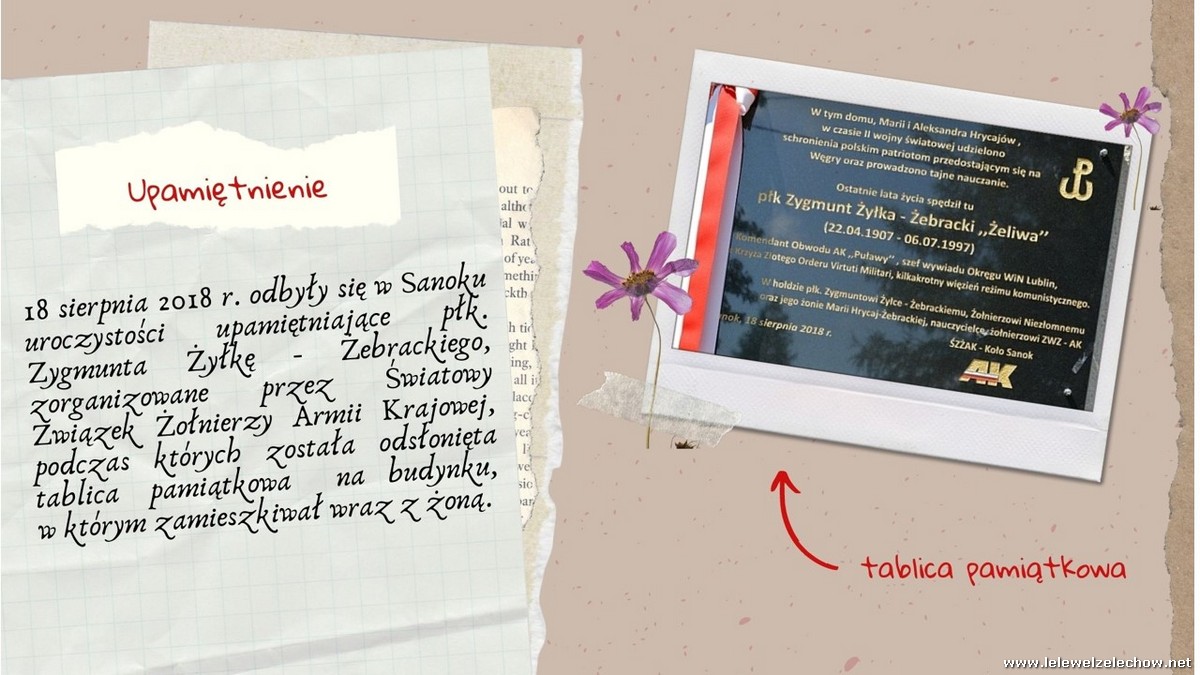 Upamiętnienie
18 sierpnia 2018 r. odbyły się w Sanoku
uroczystości upamiętniające płk.
Zygmunta Żyłkę - Żebrackiego,
zorganizowane przez Światowy
Związek Żołnierzy Armii Krajowej,
podczas których została odsłonięta
tablica pamiątkowa na budynku,
w którym zamieszkiwał wraz z żoną.
W tym domu, Marii i Aleksandra Hrycajów ,
w czasie II wojny światowej udzielono
schronienia polskim patriotom przedostającym się na
Węgry oraz prowadzono tajne nauczanie.
Ostatnie lata życia spędził tu
płk Zygmunt Żyłka - Żebracki „Żeliwa”
(22.04.1907 - 06.07.1997)
Komendant Obwodu AK „Puławy” , szef wywiadu Okręgu WiN Lublin,
Krzyża Złotego Orderu Virtuti Militari, kilkakrotny więzień reżimu komunistycznego.
W hołdzie płk. Zygmuntowi Żyłce - Żebrackiemu, Żołnierzowi Niezłomnemu
oraz jego żonie Marii Hrycaj-Żebrackiej, nauczycielce, żołnierzowi ZWZ - AK
nok, 18 sierpnia 2018 r.
ŚZŻAK - Koło Sanok
AK
tablica pamiątkowa
www.lelewelzelechow.net